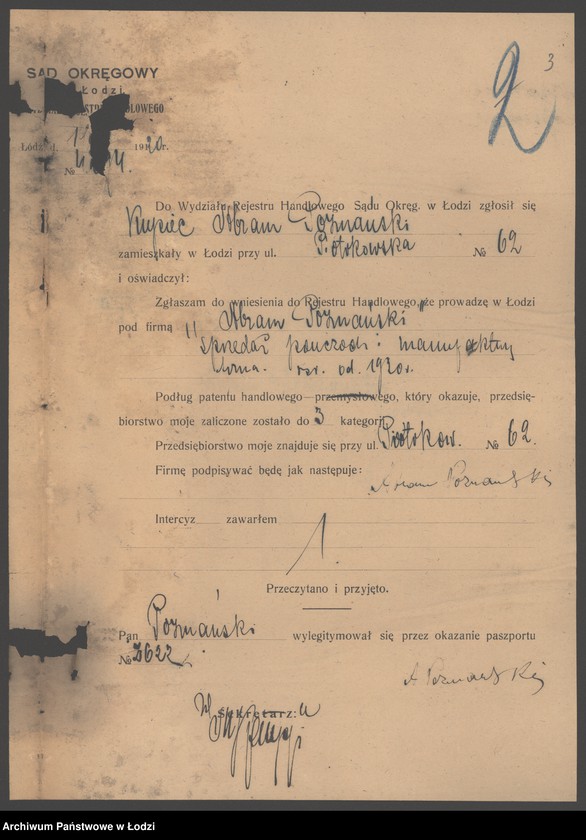 3
2
SĄD OKRĘGOWY
Łodzi
1920 r.
№
Do Wydziału Rejestru Handlowego Sądu Okręg. w Łodzi zgłosił się
Kupiec Abram Poznański
zamieszkały w Łodzi przy ul. Piotrkowska № 62
i oświadczył:
Zgłaszam do wniesienia do Rejestru Handlowego, że prowadzę w Łodzi
pod firmą "Abram Poznański"
sprzedaż pończoch i manufaktury
od. 1920r.
Podług patentu handlowego-przemysłowego, który okazuje, przedsię-
biorstwo moje zaliczone zostało do 3 kategorji
Przedsiębiorstwo moje znajduje się przy ul. Piotrkow. № 62.
Firmę podpisywać będę jak następuje:
Abram Poznanski
Intercyz zawarłem
Przeczytano i przyjęto.
Pan Poznański wylegitymował się przez okazanie paszportu
№ 3622
A Poznanski
Sekretarz:
Archiwum Państwowe w Łodzi